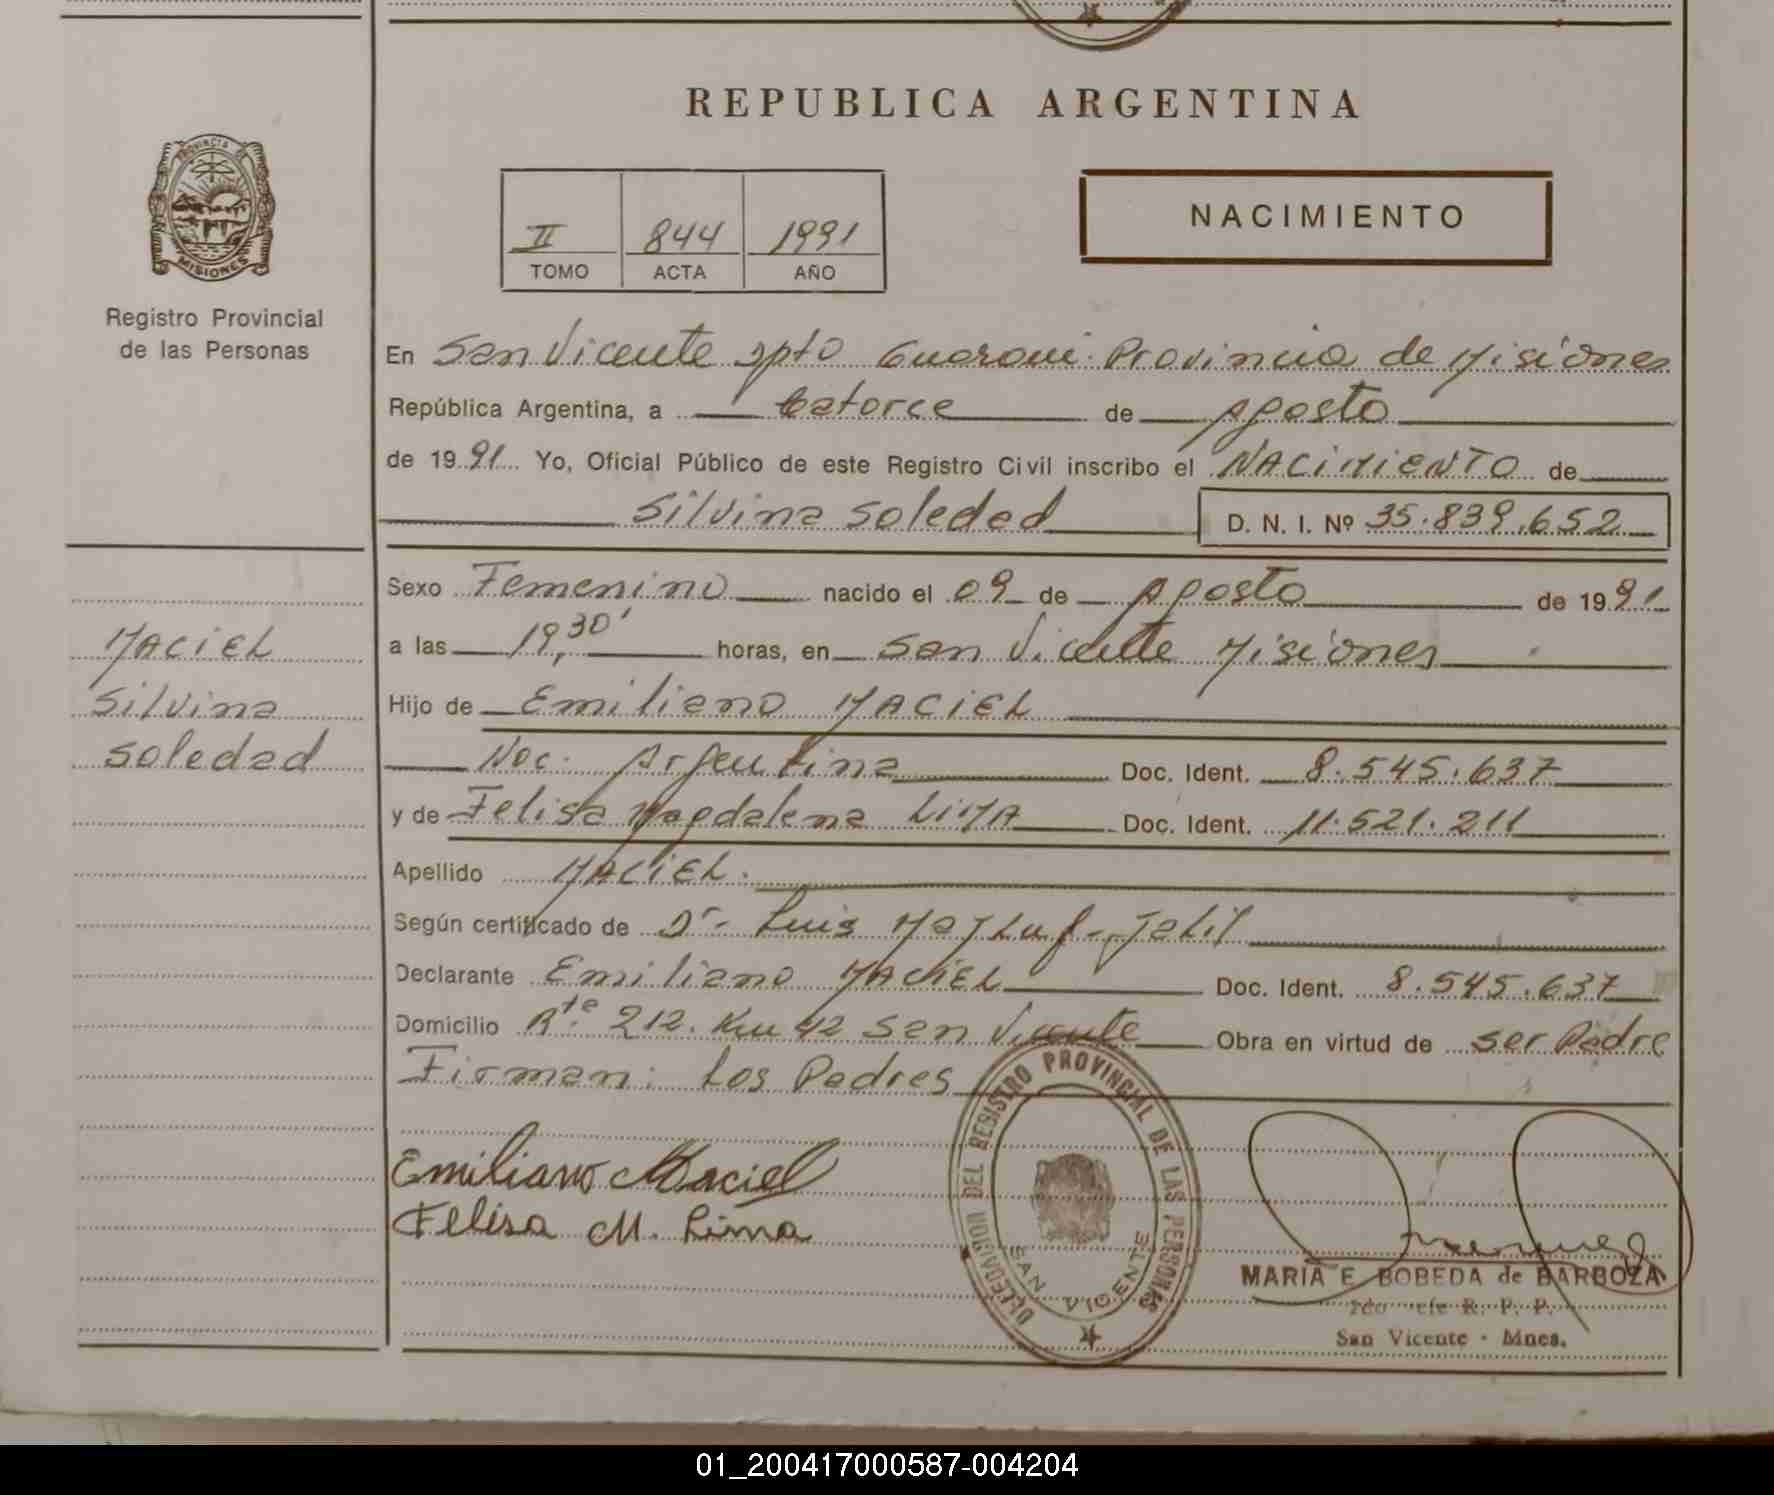 REPUBLICA ARGENTINA
PROVINCIA DE
MISIONES
Registro Provincial
de las Personas
II 844 1991
TOMO ACTA AÑO
NACIMIENTO
En San Vicente Dpto Guarani Provincia de Misiones
República Argentina, a Catorce de Agosto
de 1991 Yo, Oficial Público de este Registro Civil inscribo el NACIMIENTO de
Silvina Soledad D. N. I. Nº 35.839.652
Sexo Femenino nacido el 09 de Agosto de 1991
a las 19,30' horas, en San Vicente Misiones
Hijo de Emiliano MACIEL
Nac. Argentina Doc. Ident. 8.545.637
y de Felisa Magdalena LIMA Doc. Ident. 11.521.211
Apellido MACIEL.
Según certificado de Dr. Luis
Declarante Emiliano MACIEL Doc. Ident. 8.545.637
Domicilio Rte. 212. Km 42 San Vicente Obra en virtud de ser Padre
Firman: Los Padres
MACIEL
Silvina
Soledad
Emiliano Maciel
Felisa M. Lima
DELEGACION DEL REGISTRO PROVINCIAL DE LAS PERSONAS
SAN VICENTE
MARIA E. BOBEDA de BARBOZA
R. P. P.
San Vicente - Mnes.
01_200417000587-004204